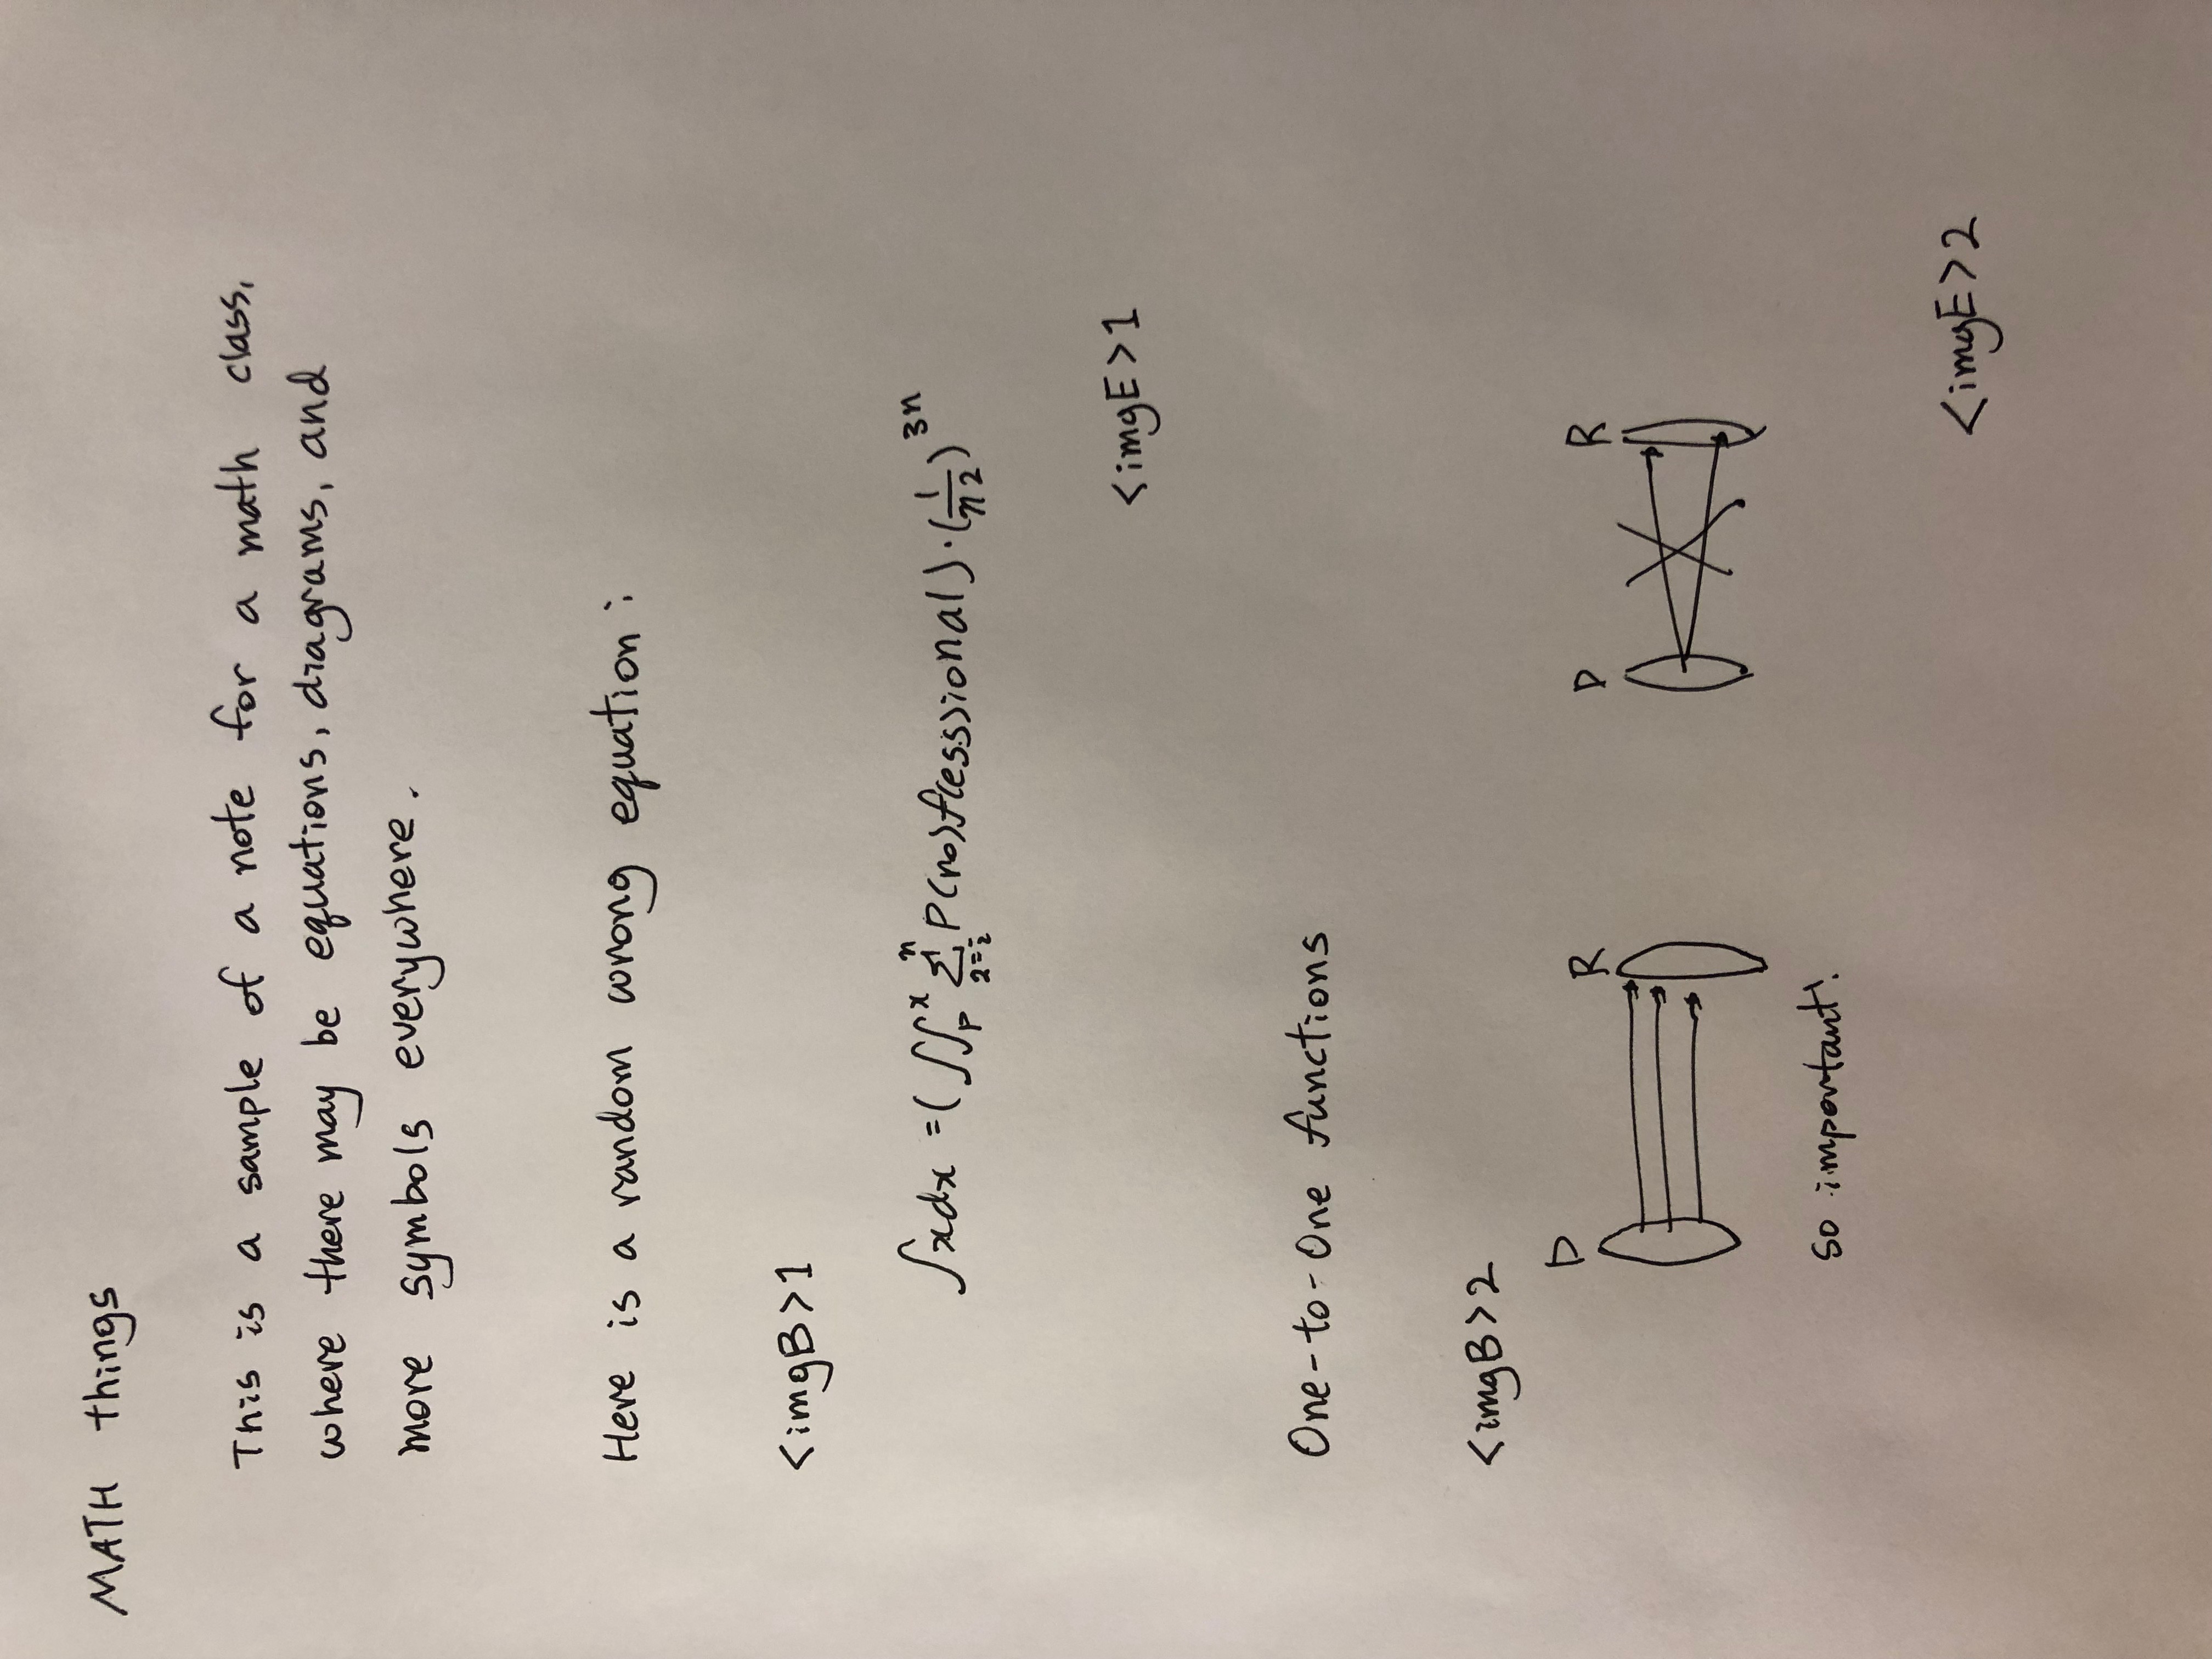 MATH things
This is a sample of a note for a math class,
where there may be equations, diagrams, and
more symbols everywhere.
Here is a random wrong equation:
<imgB>1
∫xdx = (∫∫_p^x Σ_{2=i}^n P(ro)f(ess)ional) · (1/n2)^{3n}
<imgE>1
One-to-One functions
<imgB>2
D R D R
so important!
<imgE>2